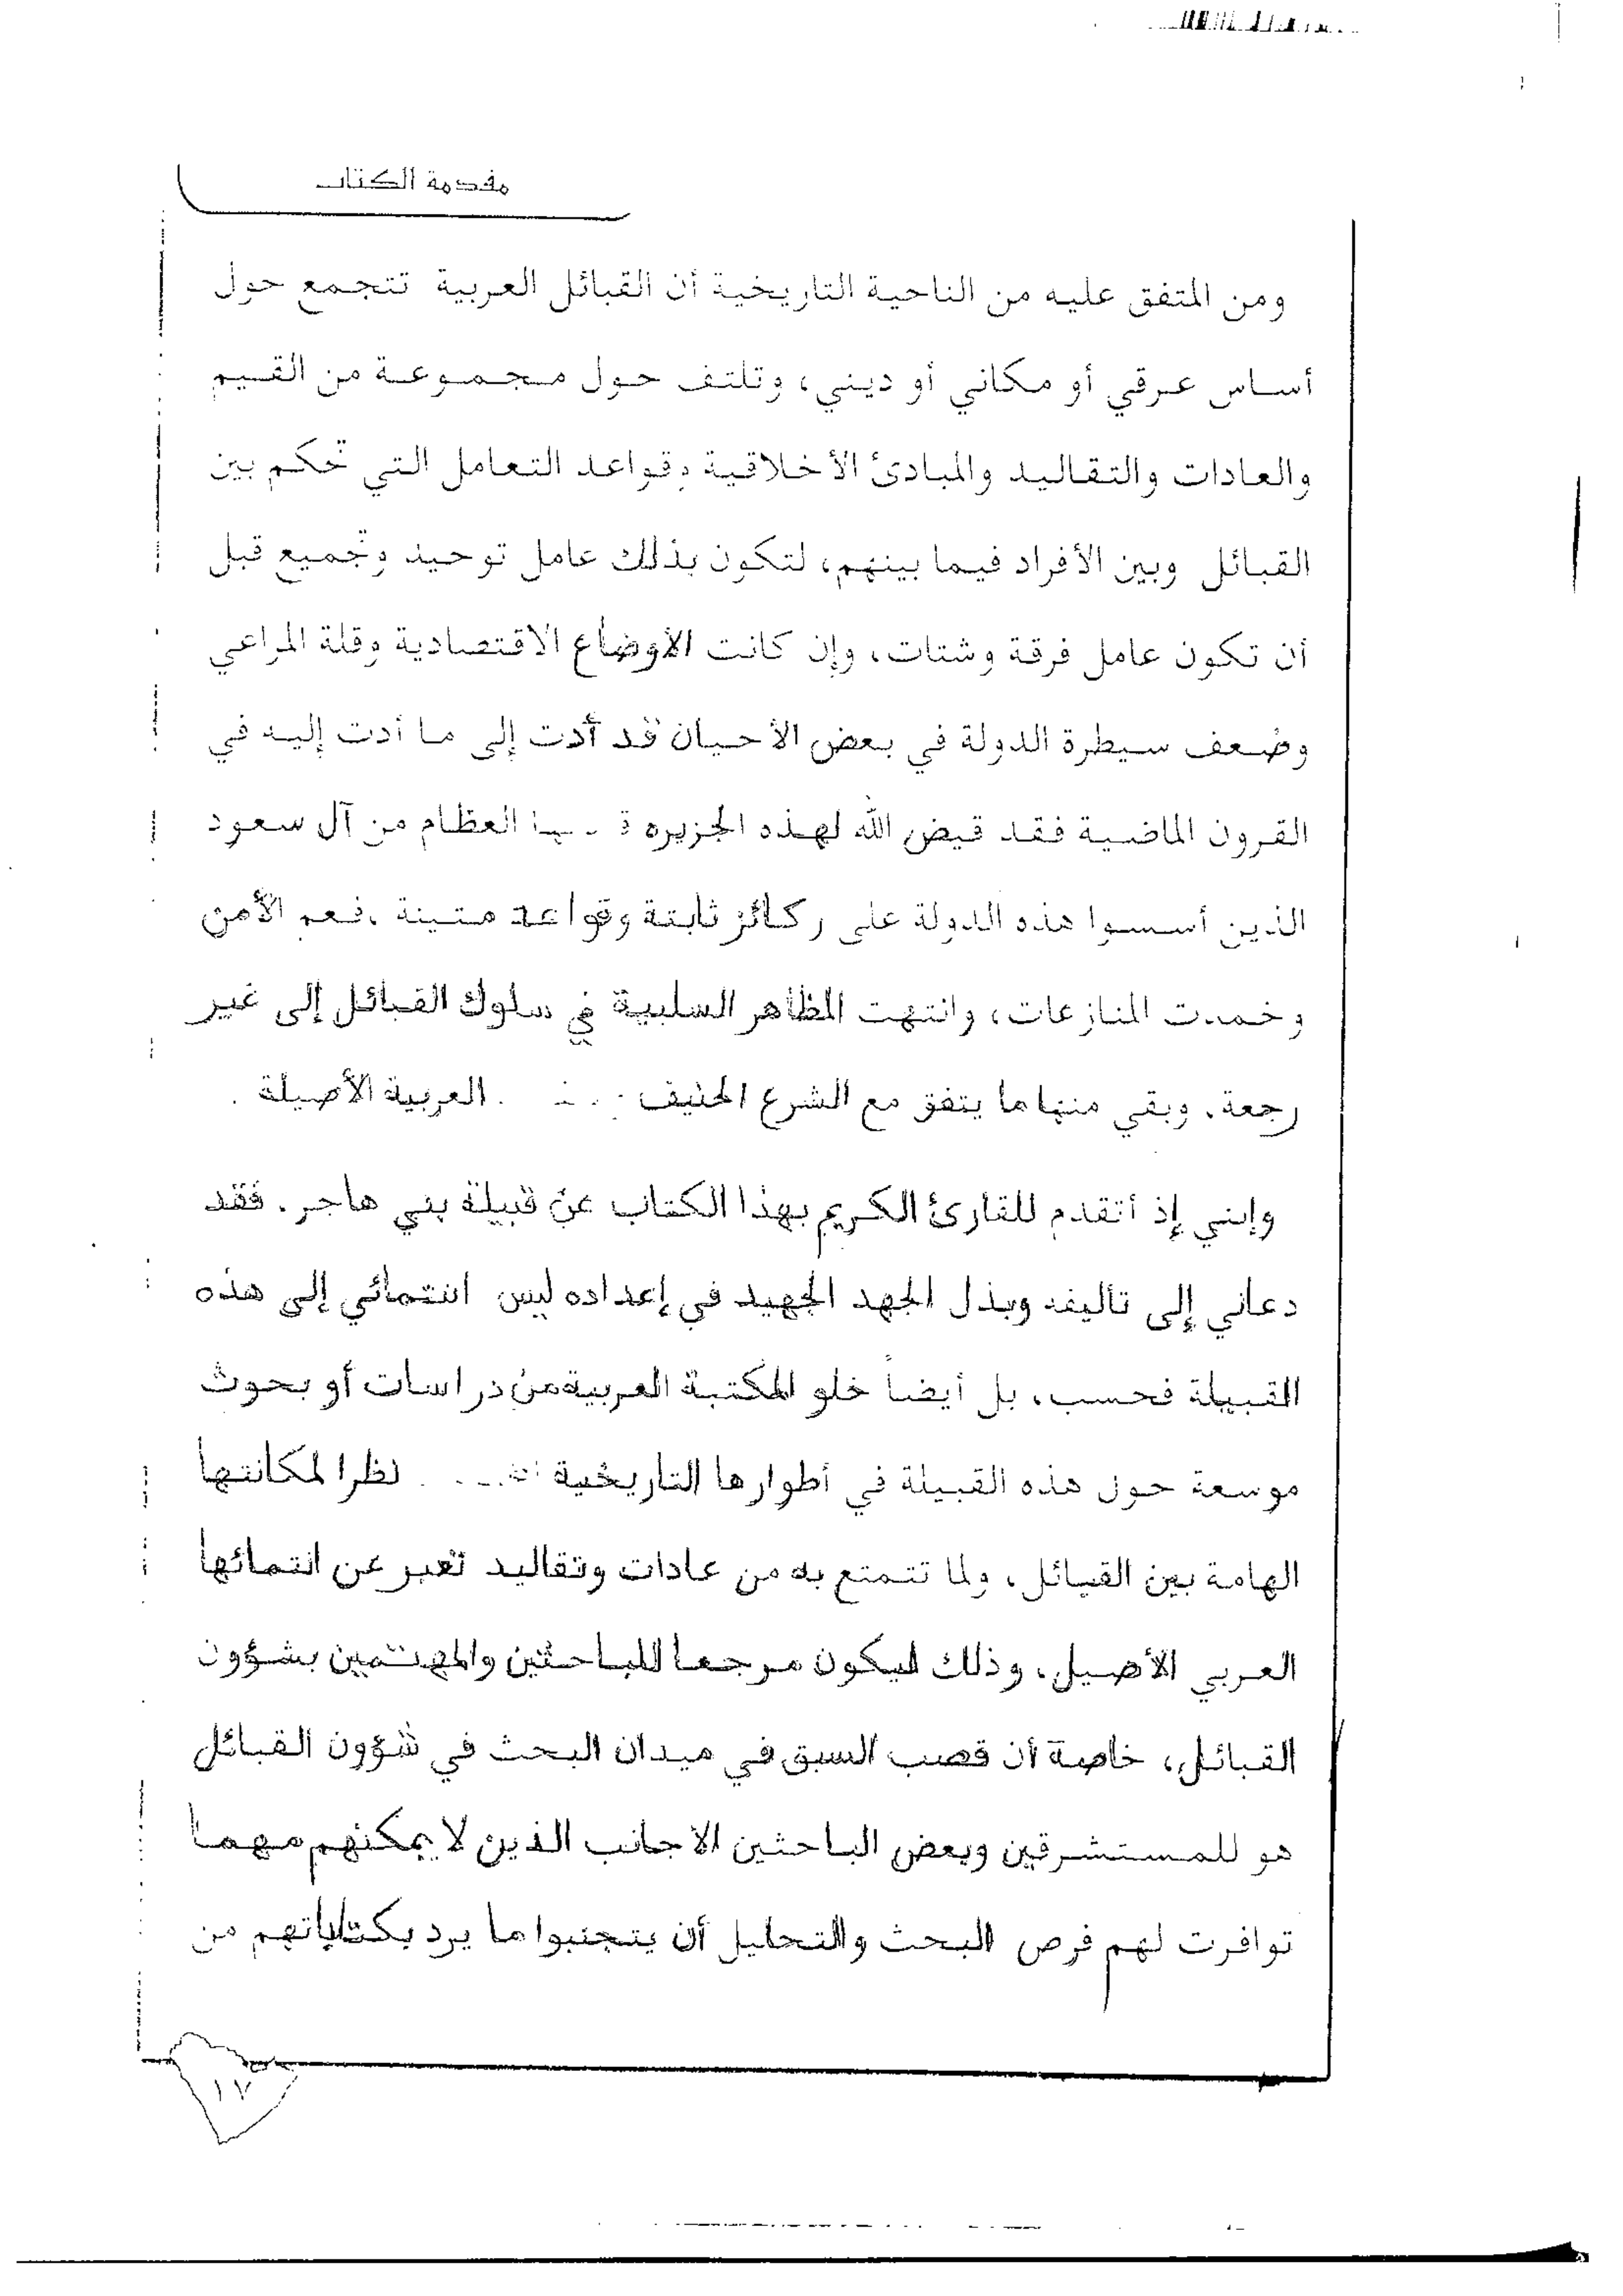 مقدمة الكتاب
ومن المتفق عليه من الناحية التاريخية أن القبائل العربية تتجمع حول
أساس عرقي أو مكاني أو ديني، وتلتف حول مجموعة من القيم
والعادات والتقاليد والمبادئ الأخلاقية وقواعد التعامل التي تحكم بين
القبائل وبين الأفراد فيما بينهم، لتكون بذلك عامل توحيد وتجميع قبل
أن تكون عامل فرقة وشتات، وإن كانت الأوضاع الاقتصادية وقلة المراعي
وضعف سيطرة الدولة في بعض الأحيان قد أدت إلى ما أدت إليه في
القرون الماضية فقد قيض الله لهذه الجزيرة العظام من آل سعود
الذين أسسوا هذه الدولة على ركائز ثابتة وقواعد متينة .فعم الأمن
وخمدت المنازعات، وانتهت المظاهر السلبية في سلوك القبائل إلى غير
رجعة. وبقي منها ما يتفق مع الشرع الحنيف العربية الأصيلة .
وإنني إذ أتقدم للقارئ الكريم بهذا الكتاب عن قبيلة بني هاجر. فقد
دعاني إلى تأليفه وبذل الجهد الجهيد في إعداده ليس انتمائي إلى هذه
القبيلة فحسب، بل أيضاً خلو المكتبة العربية من دراسات أو بحوث
موسعة حول هذه القبيلة في أطوارها التاريخية نظرا لمكانتها
الهامة بين القبائل، ولما تتمتع به من عادات وتقاليد تعبر عن انتمائها
العربي الأصيل، وذلك ليكون مرجعا للباحثين والمهتمين بشؤون
القبائل، خاصة أن قصب السبق في ميدان البحث في شؤون القبائل
هو للمستشرقين وبعض الباحثين الأجانب الذين لا يمكنهم مهما
توافرت لهم فرص البحث والتحليل أن يتجنبوا ما يرد بكتاباتهم من
١٧